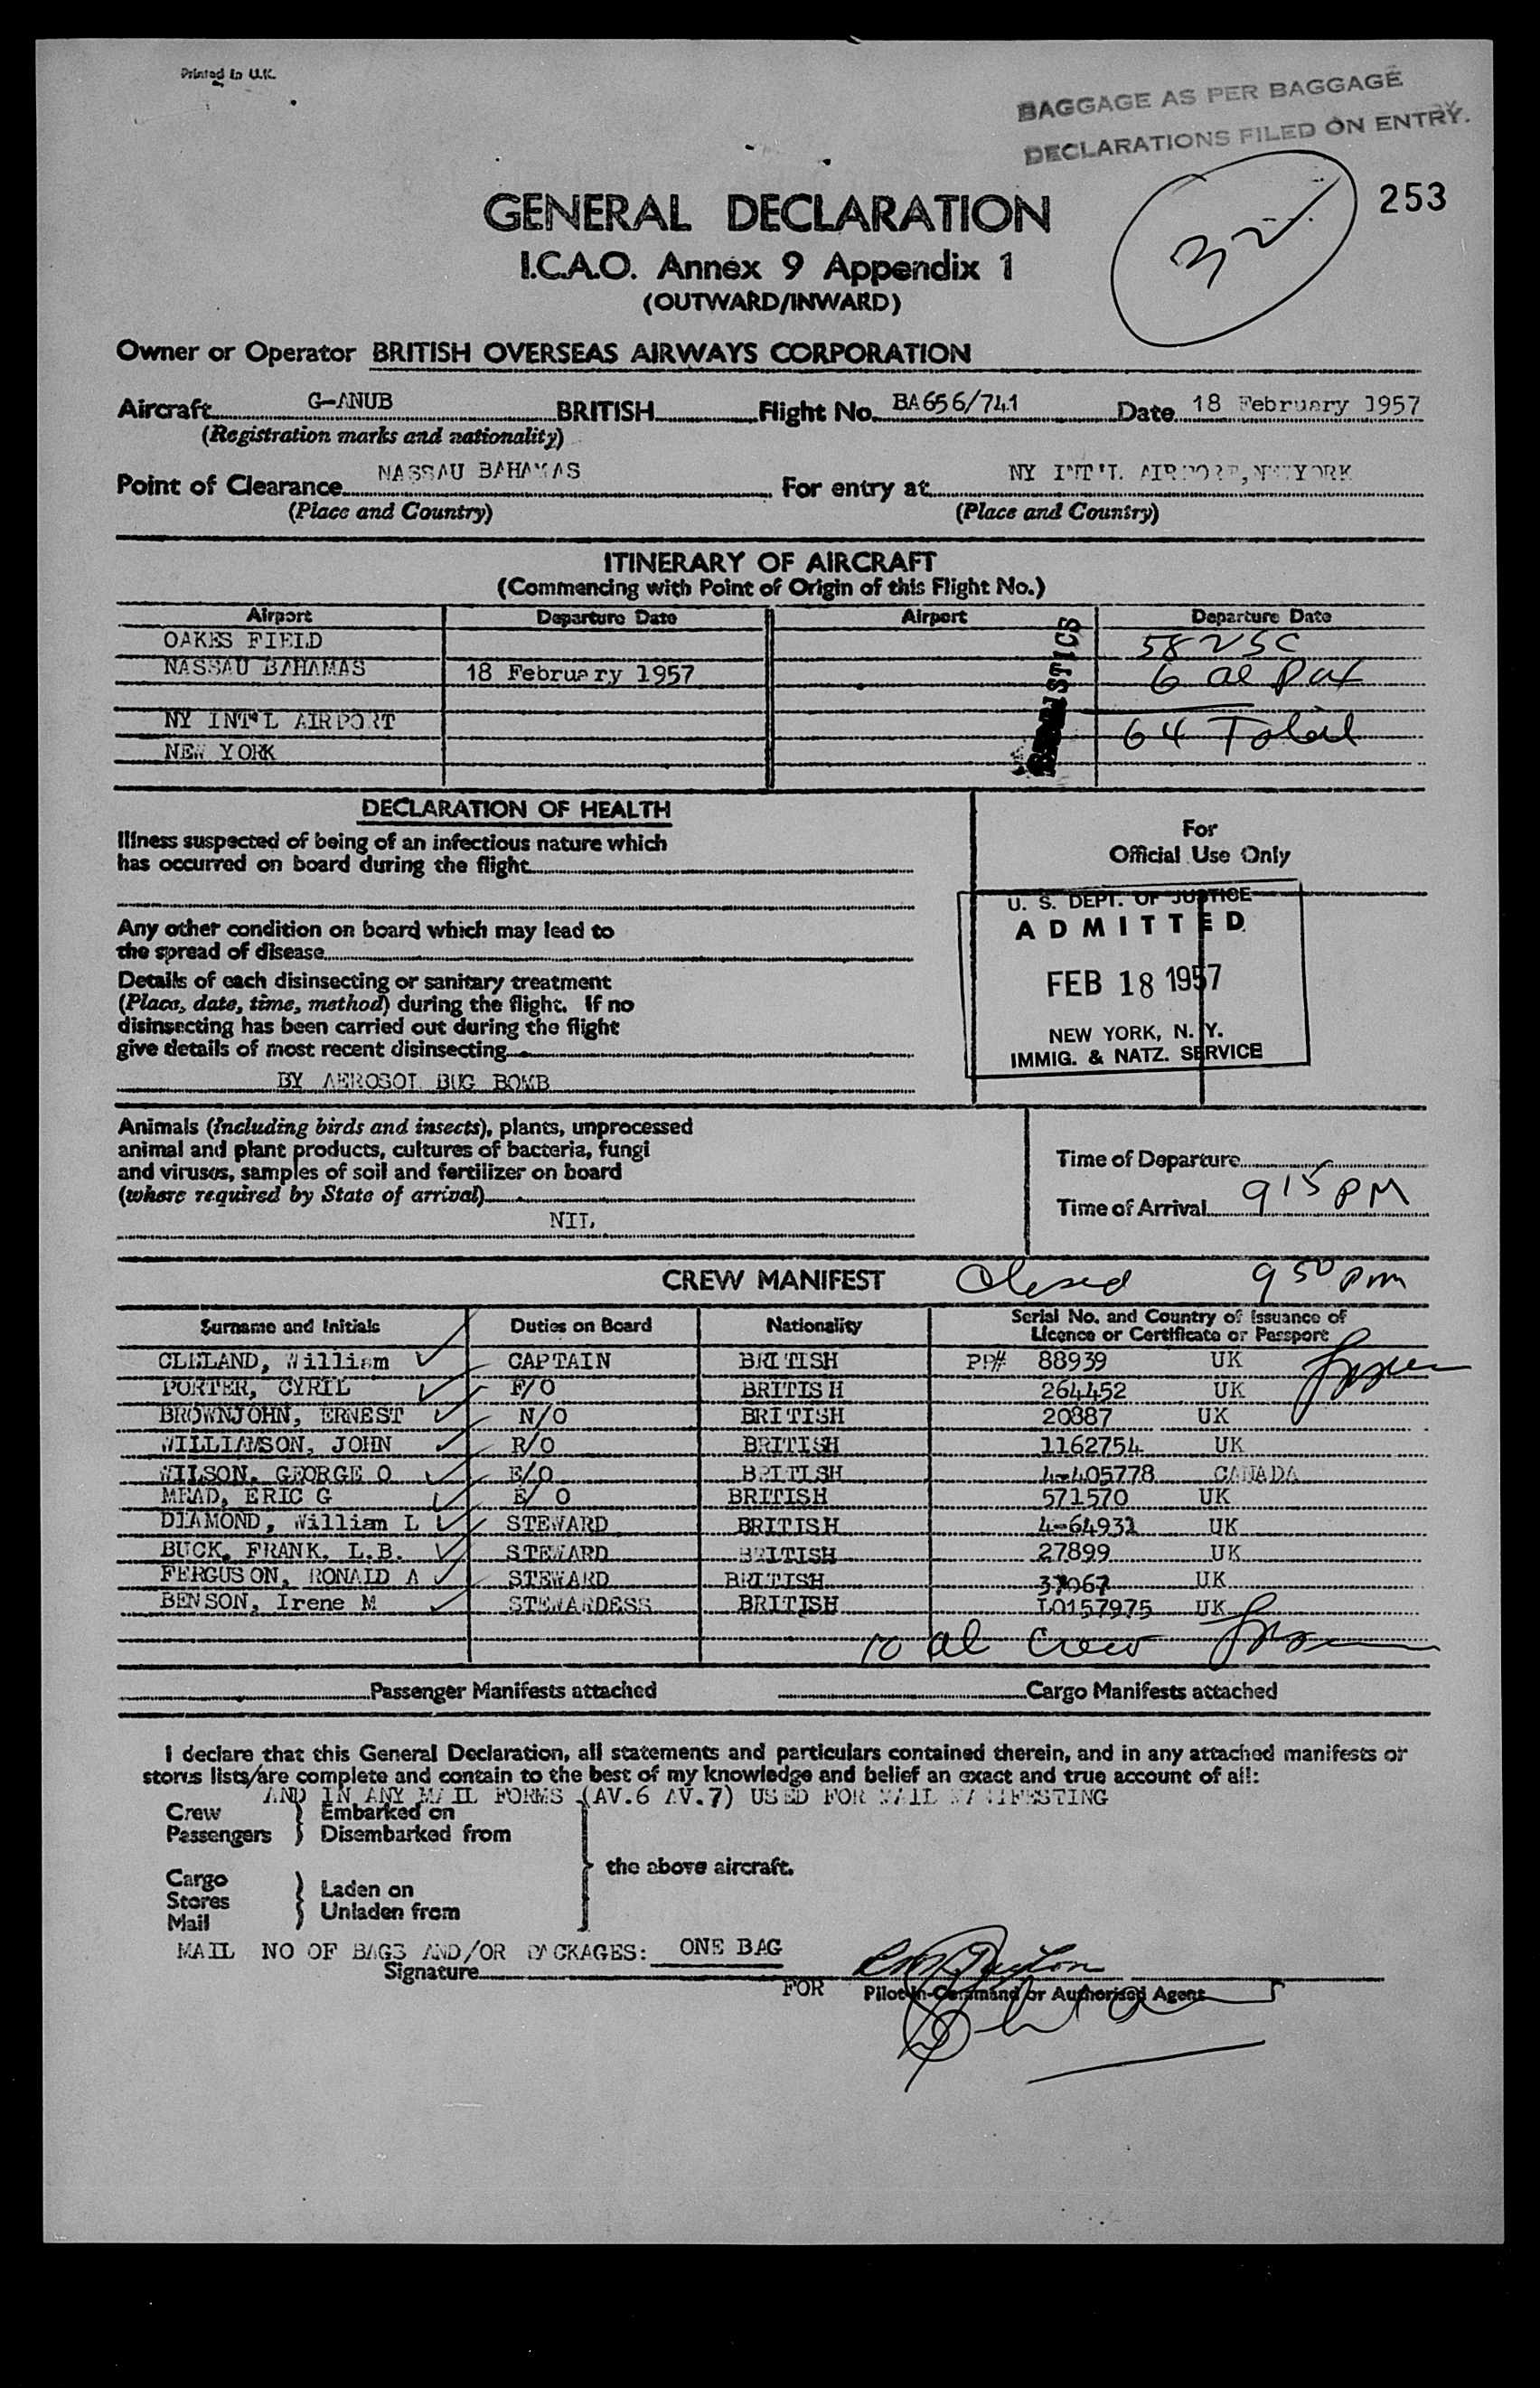 Printed in U.K.
BAGGAGE AS PER BAGGAGE
DECLARATIONS FILED ON ENTRY.
253
32
GENERAL DECLARATION
I.C.A.O. Annex 9 Appendix 1
(OUTWARD/INWARD)
Owner or Operator BRITISH OVERSEAS AIRWAYS CORPORATION
Aircraft G-ANUB BRITISH Flight No. BA656/741 Date 18 February 1957
(Registration marks and nationality)
Point of Clearance NASSAU BAHAMAS For entry at NY INT'L AIRPORT, NEW YORK
(Place and Country) (Place and Country)
ITINERARY OF AIRCRAFT
(Commencing with Point of Origin of this Flight No.)
Airport Departure Date Airport Departure Date
OAKES FIELD 58 USC
NASSAU BAHAMAS 18 February 1957 6 al Pax
NY INT'L AIRPORT 64 Total
NEW YORK
DECLARATION OF HEALTH
Illness suspected of being of an infectious nature which
has occurred on board during the flight
For
Official Use Only
Any other condition on board which may lead to
the spread of disease
Details of each disinsecting or sanitary treatment
(Place, date, time, method) during the flight. If no
disinsecting has been carried out during the flight
give details of most recent disinsecting
BY AEROSOL BUG BOMB
U. S. DEPT. OF JUSTICE
ADMITTED
FEB 18 1957
NEW YORK, N. Y.
IMMIG. & NATZ. SERVICE
Animals (including birds and insects), plants, unprocessed
animal and plant products, cultures of bacteria, fungi
and viruses, samples of soil and fertilizer on board
(where required by State of arrival)
NIL
Time of Departure
Time of Arrival 915 PM
CREW MANIFEST Closed 950 pm
Surname and Initials Duties on Board Nationality Serial No. and Country of Issuance of
Licence or Certificate or Passport
CLELAND, William CAPTAIN BRITISH PP# 88939 UK
PORTER, CYRIL F/O BRITISH 264452 UK
BROWNJOHN, ERNEST N/O BRITISH 20887 UK
WILLIAMSON, JOHN R/O BRITISH 1162754 UK
WILSON, GEORGE O E/O BRITISH 4-405778 CANADA
MEAD, ERIC G E/ O BRITISH 571570 UK
DIAMOND, William L STEWARD BRITISH 4-64931 UK
BUCK, FRANK. L.B. STEWARD BRITISH 27899 UK
FERGUSON, RONALD A STEWARD BRITISH 37067 UK
BENSON, Irene M STEWARDESS BRITISH L0157975 UK
10 al Crew
Passenger Manifests attached Cargo Manifests attached
I declare that this General Declaration, all statements and particulars contained therein, and in any attached manifests or
stores lists/are complete and contain to the best of my knowledge and belief an exact and true account of all:
AND IN ANY MAIL FORMS (AV.6 AV.7) USED FOR MAIL MANIFESTING
Crew Embarked on
Passengers Disembarked from
the above aircraft.
Cargo
Stores Laden on
Mail Unladen from
MAIL NO OF BAGS AND/OR PACKAGES: ONE BAG
Signature
FOR Pilot-in-Command or Authorised Agent